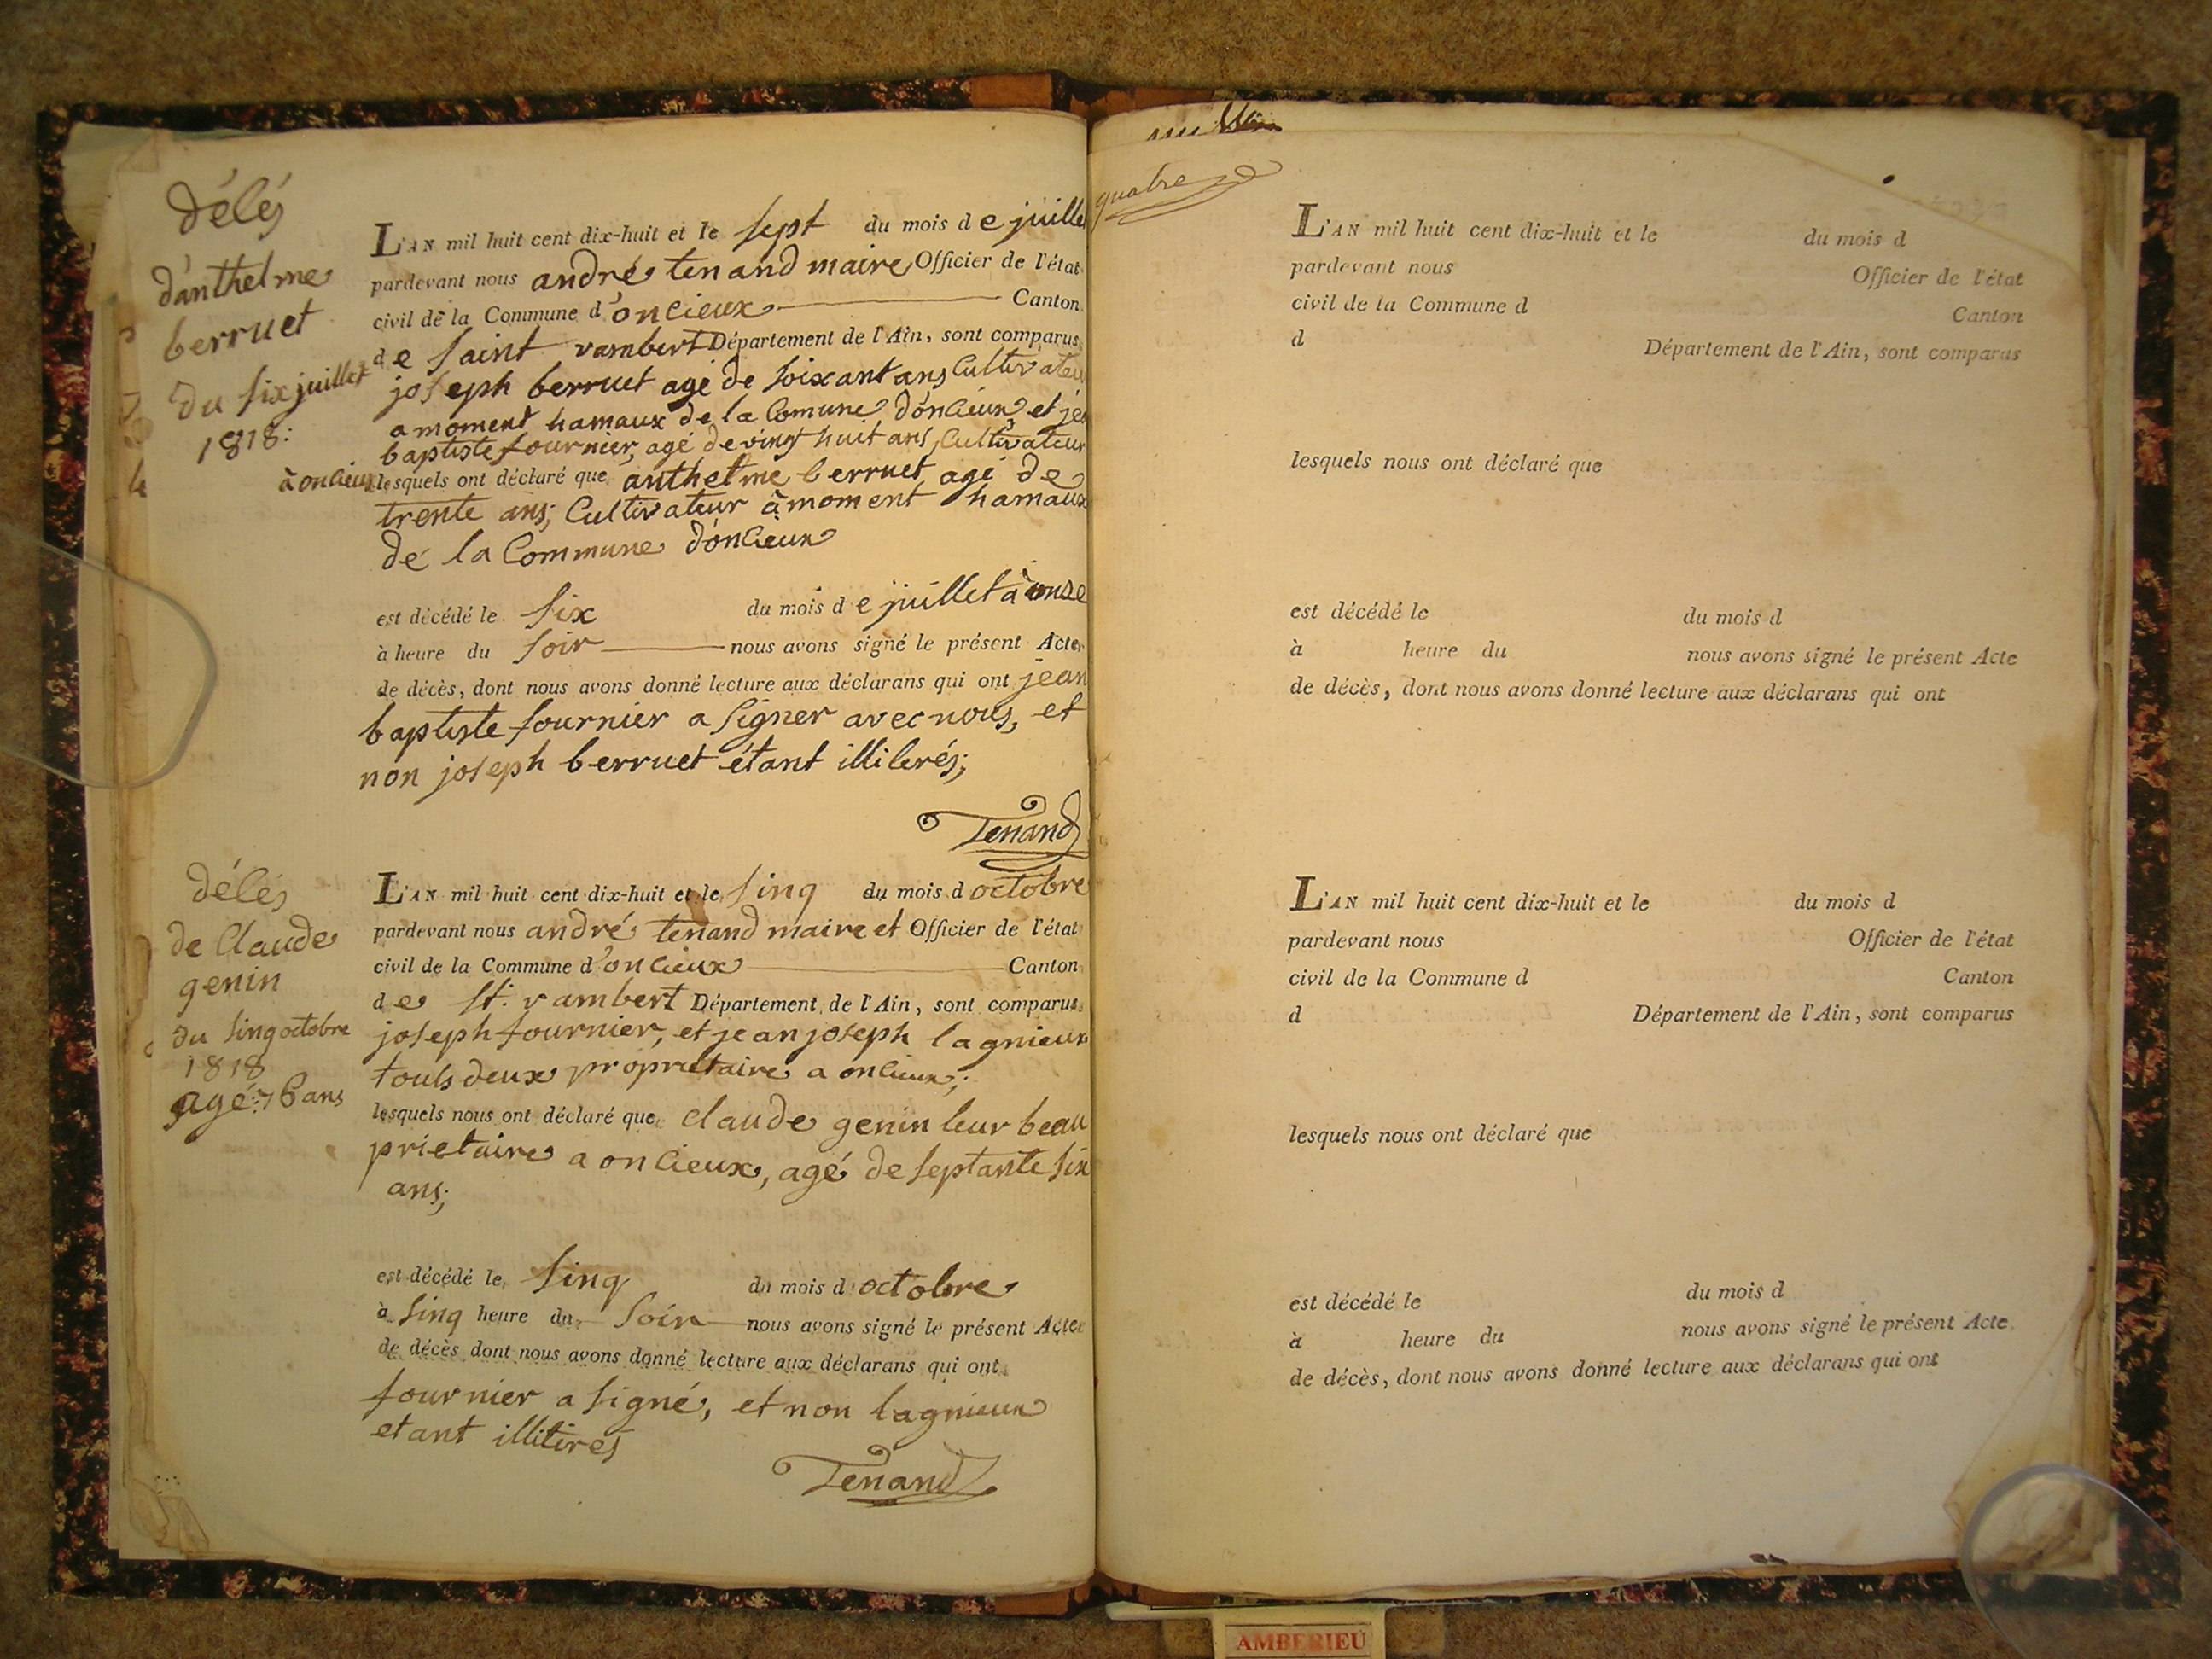 délés
d'anthelme
berruet
Du six juillet
1818:
à onlieux
L'AN mil huit cent dix-huit et le sept du mois de juille
pardevant nous andré tenand maire Officier de l'état
civil de la Commune d'onlieux Canton
de saint rambert Département de l'Ain, sont comparus
joseph berruet agé de soixant ans Cultivateu
a moment hamaux de la Comune d'onlieux et jea
baptiste fournier, agé de vingt huit ans, Cultivateur
lesquels ont déclaré que anthelme berruet agé de
trente ans; Cultivateur à moment hamaux
de la Commune d'onlieux
est décédé le six du mois de juillet à onse
à heure du soir nous avons signé le présent Acte
de décès, dont nous avons donné lecture aux déclarans qui ont jean
baptiste fournier a signer avec nous, et
non joseph berruet étant illiterés;
Tenand
délés
de Claude
genin
du sinq octobre
1818
agé 76 ans
L'AN mil huit cent dix-huit et le sinq du mois d octobre
pardevant nous andré tenand maire et Officier de l'état
civil de la Commune d'onlieux Canton
de st. rambert Département de l'Ain, sont comparus
joseph fournier, et jean joseph lagnieux
touls deux propriétaire a onlieux;
lesquels nous ont déclaré que claude genin leur beau
prietaire a onlieux, agé de septante six
ans;
est décédé le sinq du mois d octobre
à sinq heure du soir nous avons signé le présent Acte
de décès dont nous avons donné lecture aux déclarans qui ont
fournier a signé, et non lagnieux
etant illitirés
Tenand
quatre
L'AN mil huit cent dix-huit et le du mois d
pardevant nous Officier de l'état
civil de la Commune d Canton
d Département de l'Ain, sont comparus
lesquels nous ont déclaré que
est décédé le du mois d
à heure du nous avons signé le présent Acte
de décès, dont nous avons donné lecture aux déclarans qui ont
L'AN mil huit cent dix-huit et le du mois d
pardevant nous Officier de l'état
civil de la Commune d Canton
d Département de l'Ain, sont comparus
lesquels nous ont déclaré que
est décédé le du mois d
à heure du nous avons signé le présent Acte
de décès, dont nous avons donné lecture aux déclarans qui ont
AMBERIEU